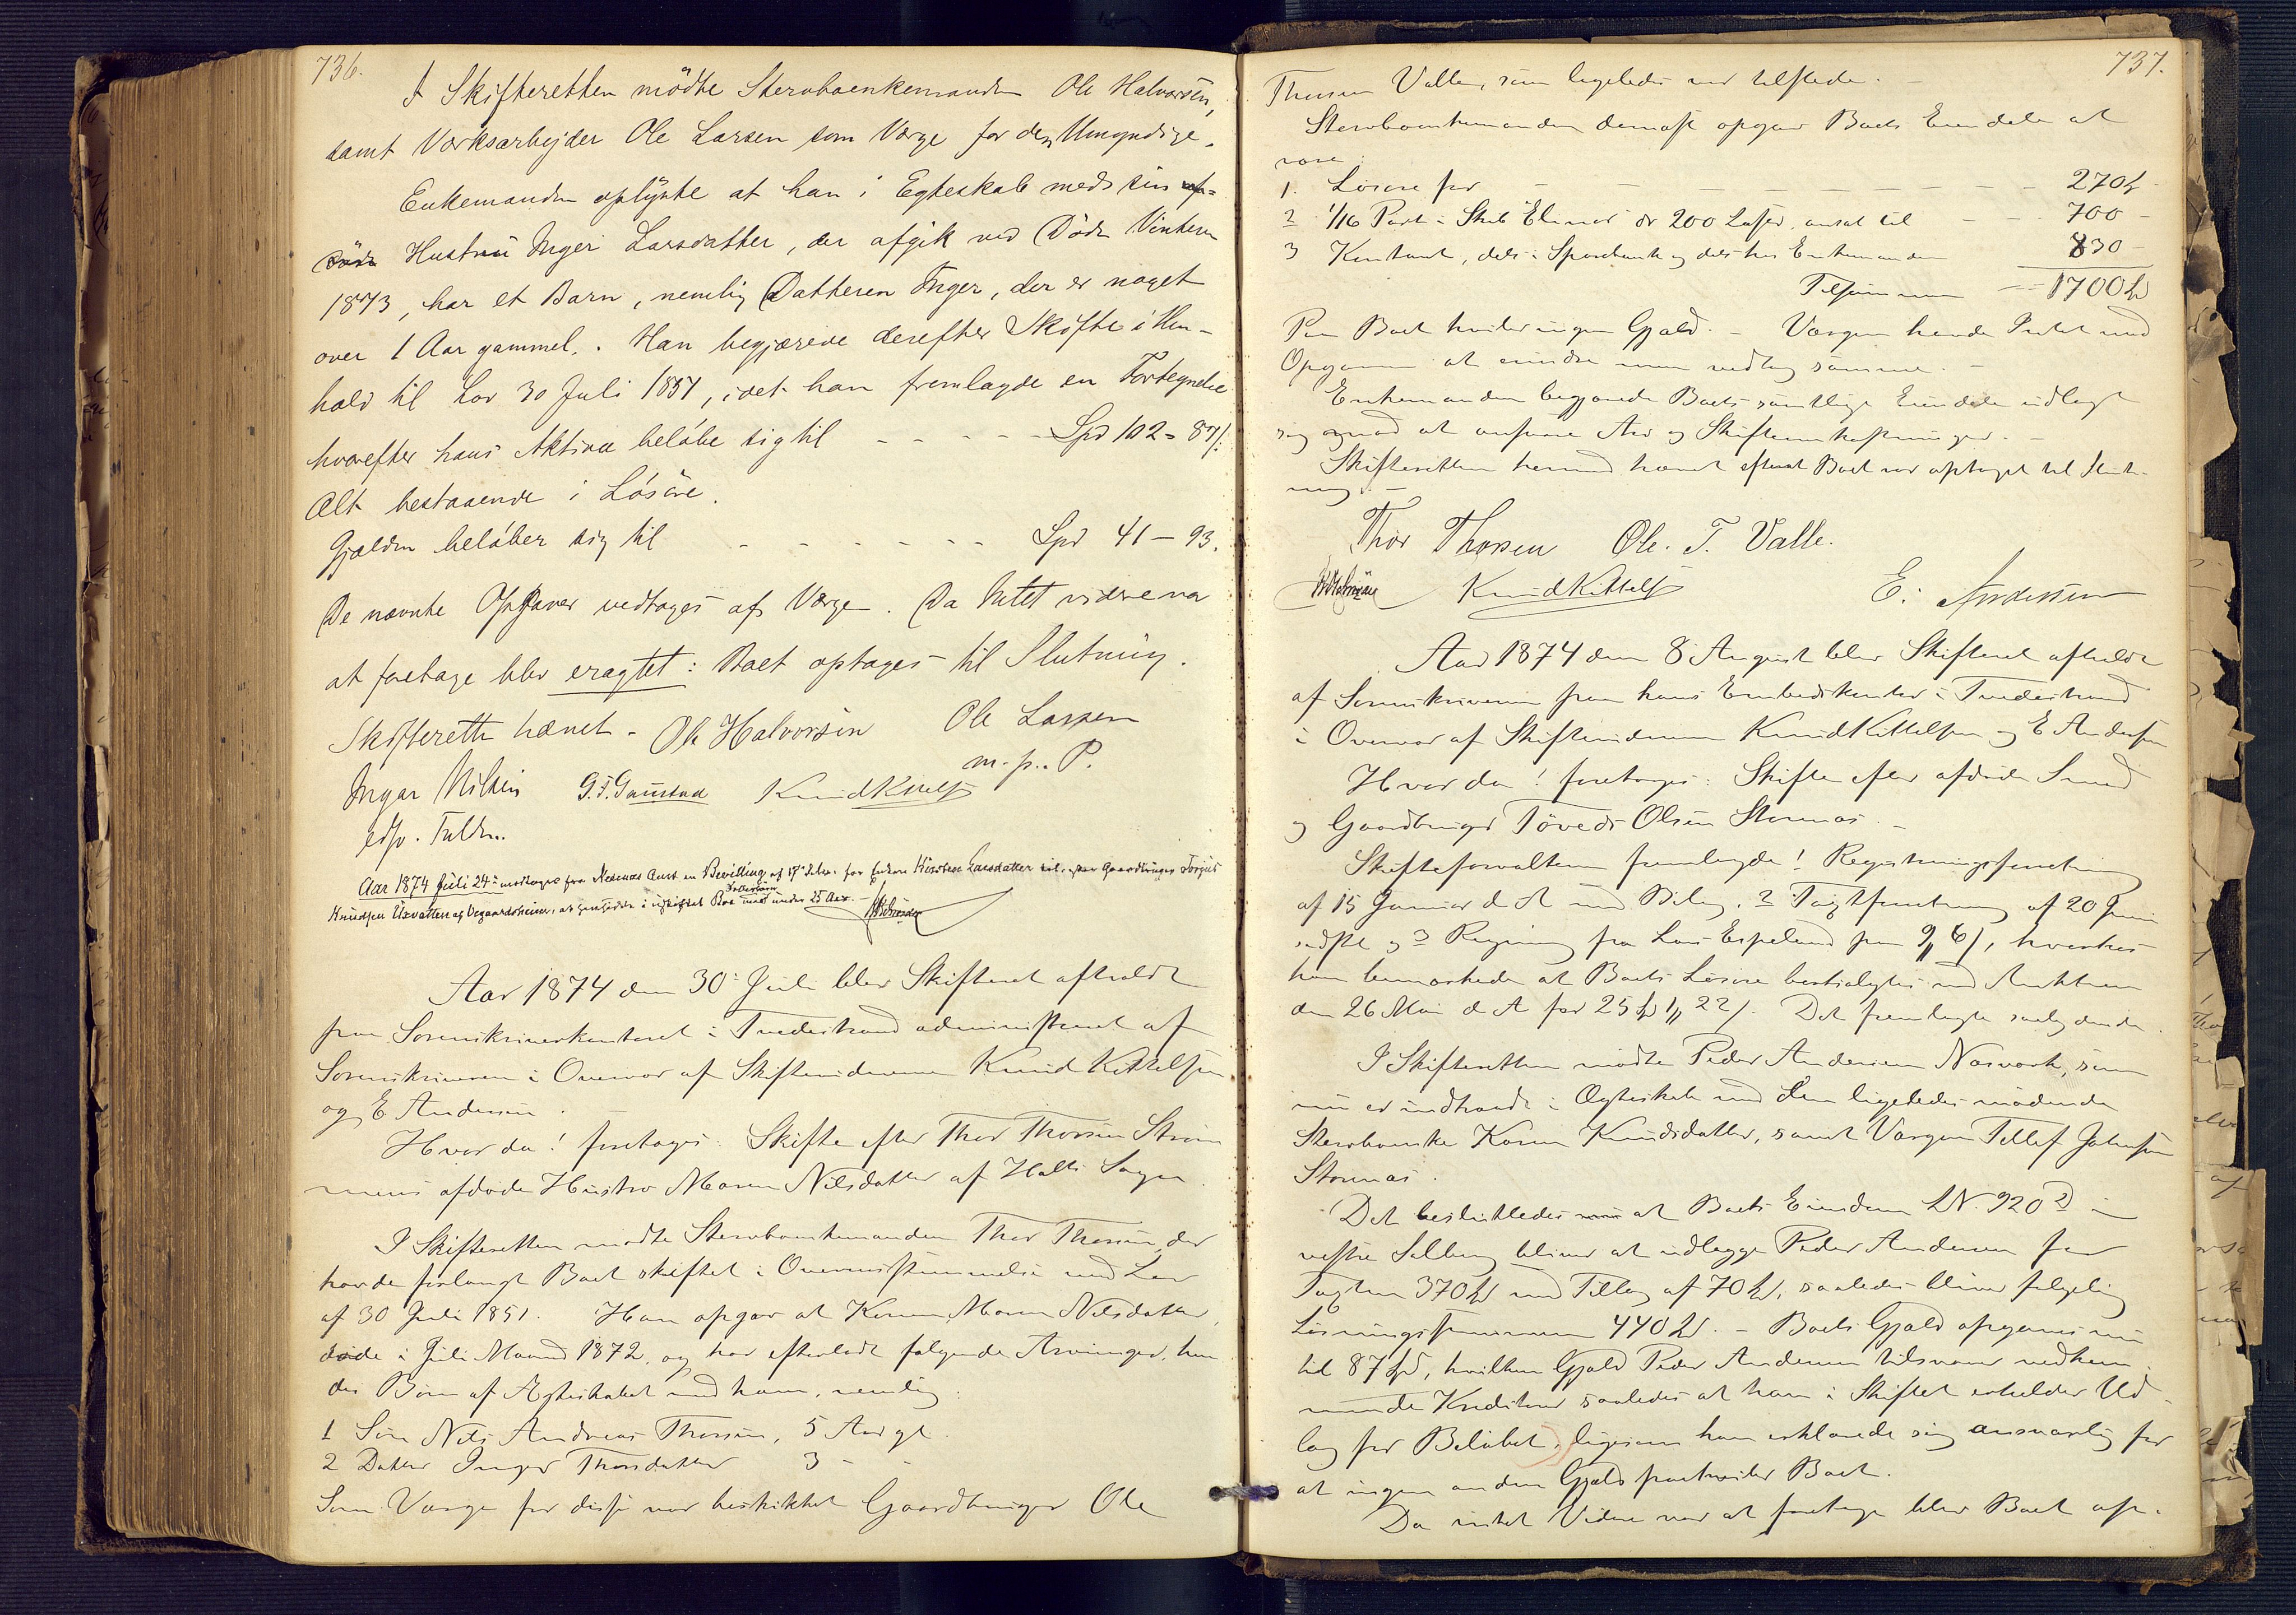 736.
I Skifteretten mödte Stervboenkemanden Ole Halvorsen,
samt Værksarbejder Ole Larsen som Værge for den Umyndige.
Enkemanden oplyste at han i Egteskab med sin af=
døde Hustru Inger Larsdatter, der afgik ved Døden Vinteren
1873, har et Barn, nemlig Datteren Inger, der er noget
over 1 Aar gammel. Han begjærede derefter Skifte i Hen-
hold til Lov 30 Juli 1851, idet han fremlagde en Fortegnelse
hvorefter hans Aktiva beløbe sig til - - - - - Spd 102 = 87/.
Alt bestaaende i Løsøre.
Gjælden beløber sig til - - - - - - Spd 41 - 93.
De nævnte Opgaver vedtages af Værgen. Da Intet videre var
at foretage blev eragtet: Boet optages til Slutning.
Skifteretten hævet. Ole Halvorsen Ole Larsen
m. p. P.
Ingar Nilsen G.T. Gaustad Knud Kittelsen
edsv. Fuldm.
Aar 1874 Juli 24de modtages fra Nedenæs Amt en Bevilling af 17de dsm. for Enken Kirsten Larsdatter eft. Gaardbruger Torjus
Knudsen Uxvatten af Vegaardsheien, at hensidde i uskiftet Bo med Fællesbørn under 25 Aar.
Aar 1874 den 30 Juli blev Skifteret afholdt
paa Sorenskriverkontoret i Tvedestrand administreret af
Sorenskriveren i Overvær af Skiftevidnerne Knud Kittelsen
og E Andersen.
Hvor da! foretages: Skifte efter Thor Thorsen Strøm
mens afdøde Hustro Maren Nilsdatter af Holts Sogn.
I Skifteretten mødte Stervboenkemanden Thor Thorsen der
havde forlangt Boet skiftet i Overensstemmelse med Lov
af 30 Juli 1851. Han opgav at Konen Maren Nilsdatter,
døde i Juli Maaned 1872, og har efterladt følgende Arvinger, hen
des Børn af Ægteskabet med ham, nemlig:
1 Søn Nils Andreas Thorsen, 5 Aar gl.
2 Datter Inger Thorsdatter 3 -
Som Værge for disse var beskikket Gaardbruger Ole
737.
Thorsen Valle, som ligeledes var tilstede.
Stervboenkemanden dernæst opgav Boets Eiendele at
være:
1. Løsøre for - - - - - 270 -
2 1/16 Part i Skib "Elinor" dr 200 Læster, ansat til - - 700 -
3 Kontant, dels i Sparebank og dels hos Enkemanden 830 -
Tilsammen - - 1700 Spd
Paa Boet hviler ingen Gjæld. - Værgen havde Intet ved
Opgaven at erindre men vedtog samme. -
Enkemanden begjærede Boets samtlige Eiendele udlagt
sig mod at ansvare Arv og Skifteomkostninger. -
Skifteretten hermed hævet efterat Boet var optaget til Slut-
ning. -
Thor Thorsen Ole. T. Valle.
Knud Kittelsen E. Andersen
Aar 1874 den 8 August blev Skifteret afholdt
af Sorenskriveren paa hans Embedskontor i Tvedestrand
i Overvær af Skiftevidnerne Knud Kittelsen og E Andersen
Hvor da! foretages: Skifte efter afdøde Smed
og Gaardbruger Töveds Olsen Stornæs. -
Skifteforvalteren fremlagde! Registreringsforretning
af 15 Januar d A med Bilag, 2 Taxtforretning af 20 Juni
sidstl og 3 Regning fra Lars Espeland paa 9 " 6/, hvorhos
han bemærkede at Boets Løsøre bortsolgtes ved Auktion
den 26 Mai d A for 25 Spd 1 " 22/. Det fremlagte saalydende.
I Skifteretten mødte Peder Andersen Næsverk, som
nu er indtraadt i Ægteskab med den ligeledes mødende
Stervboenke Karen Knudsdatter, samt Værgen Tellef Johnsen
Stornæs.
Det besluttedes at Boets Eiendom LN. 920 d i
vestre Selberg bliver at udlægge Peder Andersen for
Taxten 370 Spd med Tillæg af 70 Spd, saaledes bliver følgelig
Løsningssummen 440 Spd. - Boets Gjæld opgaves nu
til 87 Spd, hvilken Gjæld Peder Andersen tilsvarer vedkom
mende Kreditorer saaledes at han i Skiftet erholder Ud
læg for Beløbet, ligesom han erklærede sig ansvarlig for
at ingen anden Gjæld paahviler Boet.
Da intet Videre var at foretage blev Boet op-